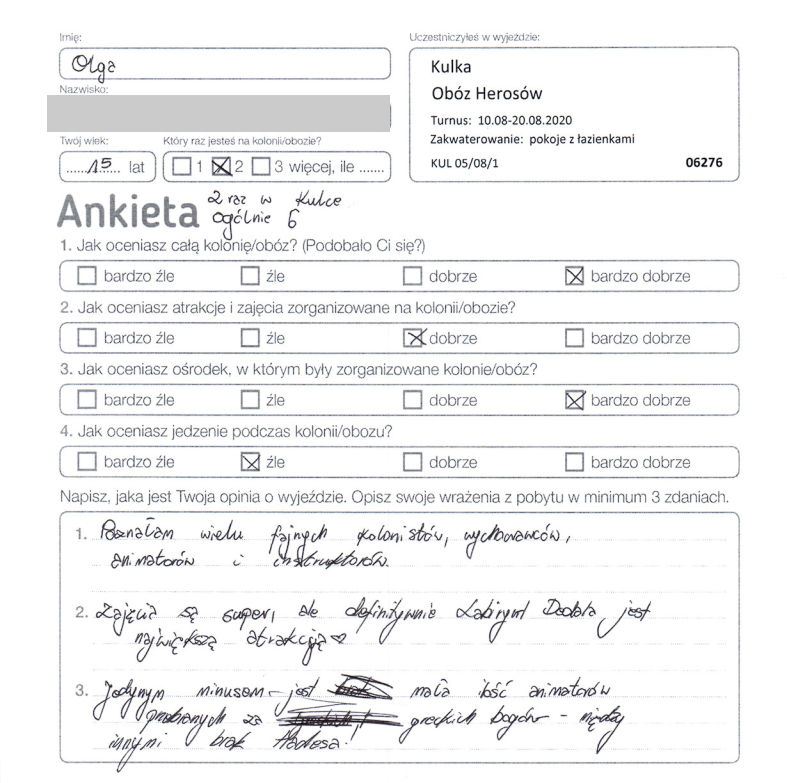 Imię:
Uczestniczyłeś w wyjeździe:
Olga
Kulka
Obóz Herosów
Nazwisko:
Turnus: 10.08-20.08.2020
Zakwaterowanie: pokoje z łazienkami
KUL 05/08/1 06276
Twój wiek:
Który raz jesteś na kolonii/obozie?
......15..... lat
1 2 3 więcej, ile .......
Ankieta
2 raz w Kulce
ogólnie 6
1. Jak oceniasz całą kolonię/obóz? (Podobało Ci się?)
bardzo źle źle dobrze bardzo dobrze
2. Jak oceniasz atrakcje i zajęcia zorganizowane na kolonii/obozie?
bardzo źle źle dobrze bardzo dobrze
3. Jak oceniasz ośrodek, w którym były zorganizowane kolonie/obóz?
bardzo źle źle dobrze bardzo dobrze
4. Jak oceniasz jedzenie podczas kolonii/obozu?
bardzo źle źle dobrze bardzo dobrze
Napisz, jaka jest Twoja opinia o wyjeździe. Opisz swoje wrażenia z pobytu w minimum 3 zdaniach.
1. Poznałam wielu fajnych kolonistów, wychowawców,
animatorów i instruktorów.
2. Zajęcia są super, ale definitywnie Labirynt Dedala jest
największą atrakcją ♡
3. Jedynym minusem jest mała ilość animatorów
przebranych za greckich bogów - między
innymi brak Hadesa!